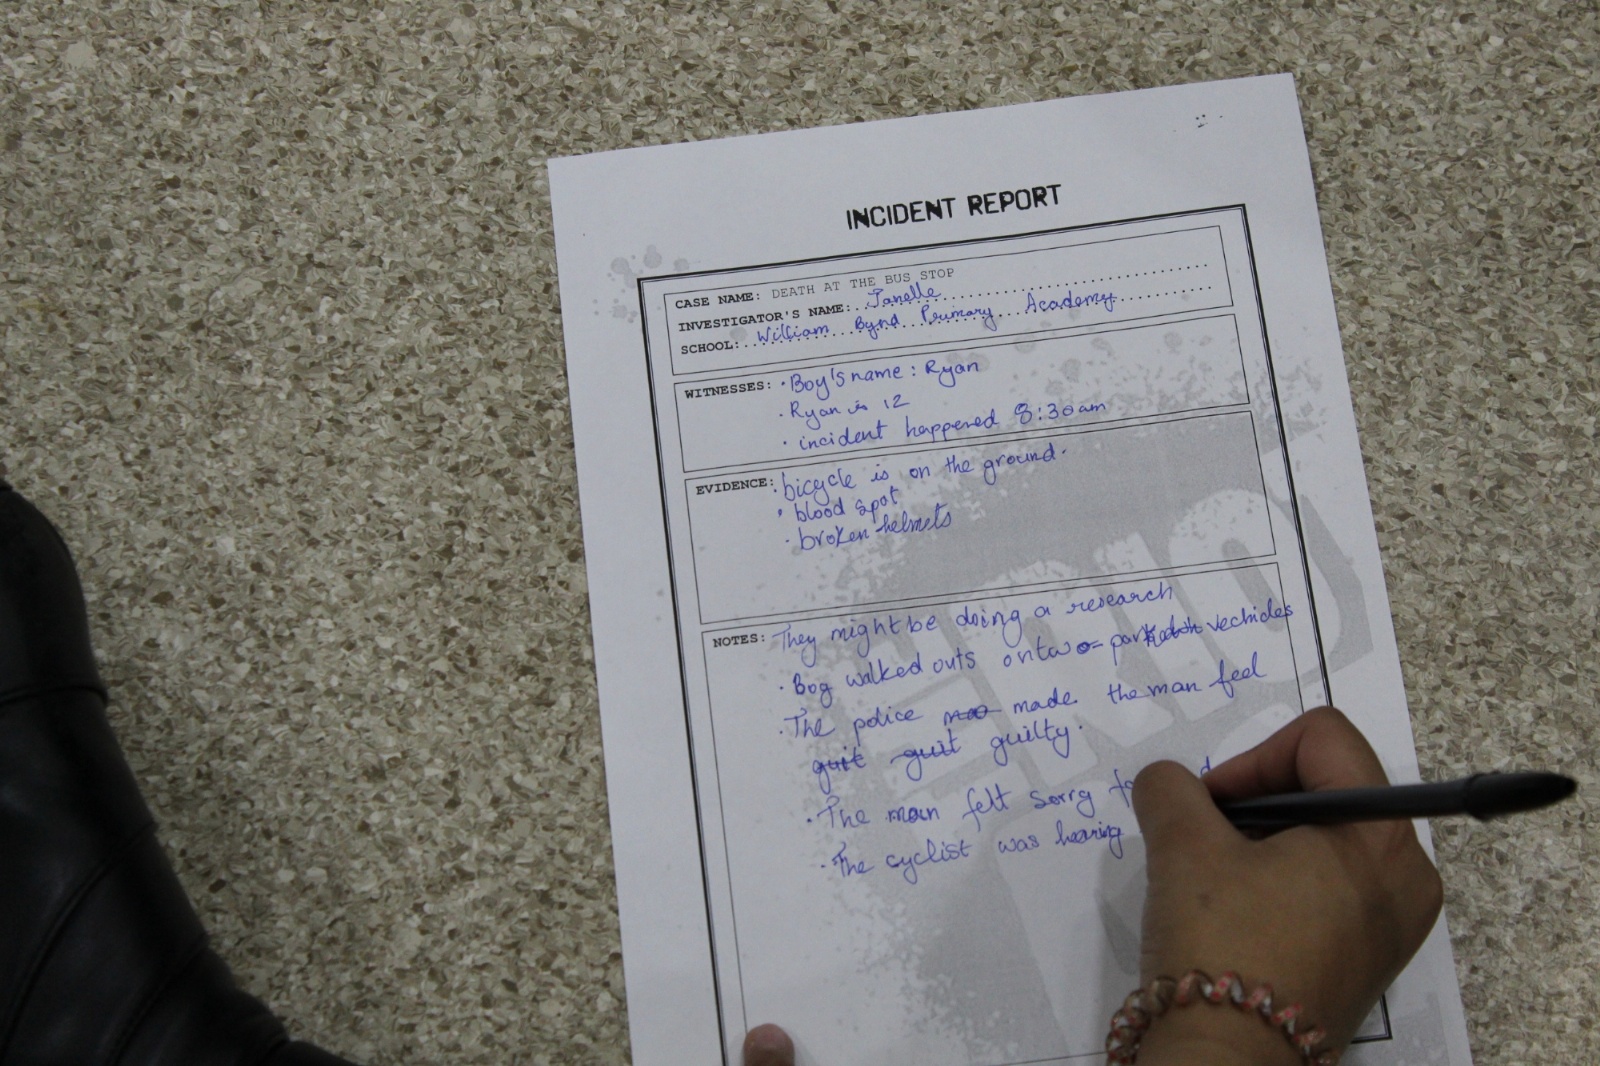 INCIDENT REPORT
CASE NAME: DEATH AT THE BUS STOP
INVESTIGATOR'S NAME: Janelle
SCHOOL: William Byrd Primary Academy
WITNESSES: • Boy's name : Ryan
• Ryan is 12
• incident happened 8:30am
EVIDENCE: • bicycle is on the ground.
• blood spot
• broken helmets
NOTES: They might be doing a research
• Boy walked outs onto vechicles
• The police made the man feel
guit guit guilty.
• The man felt sorry
• The cyclist was hearing